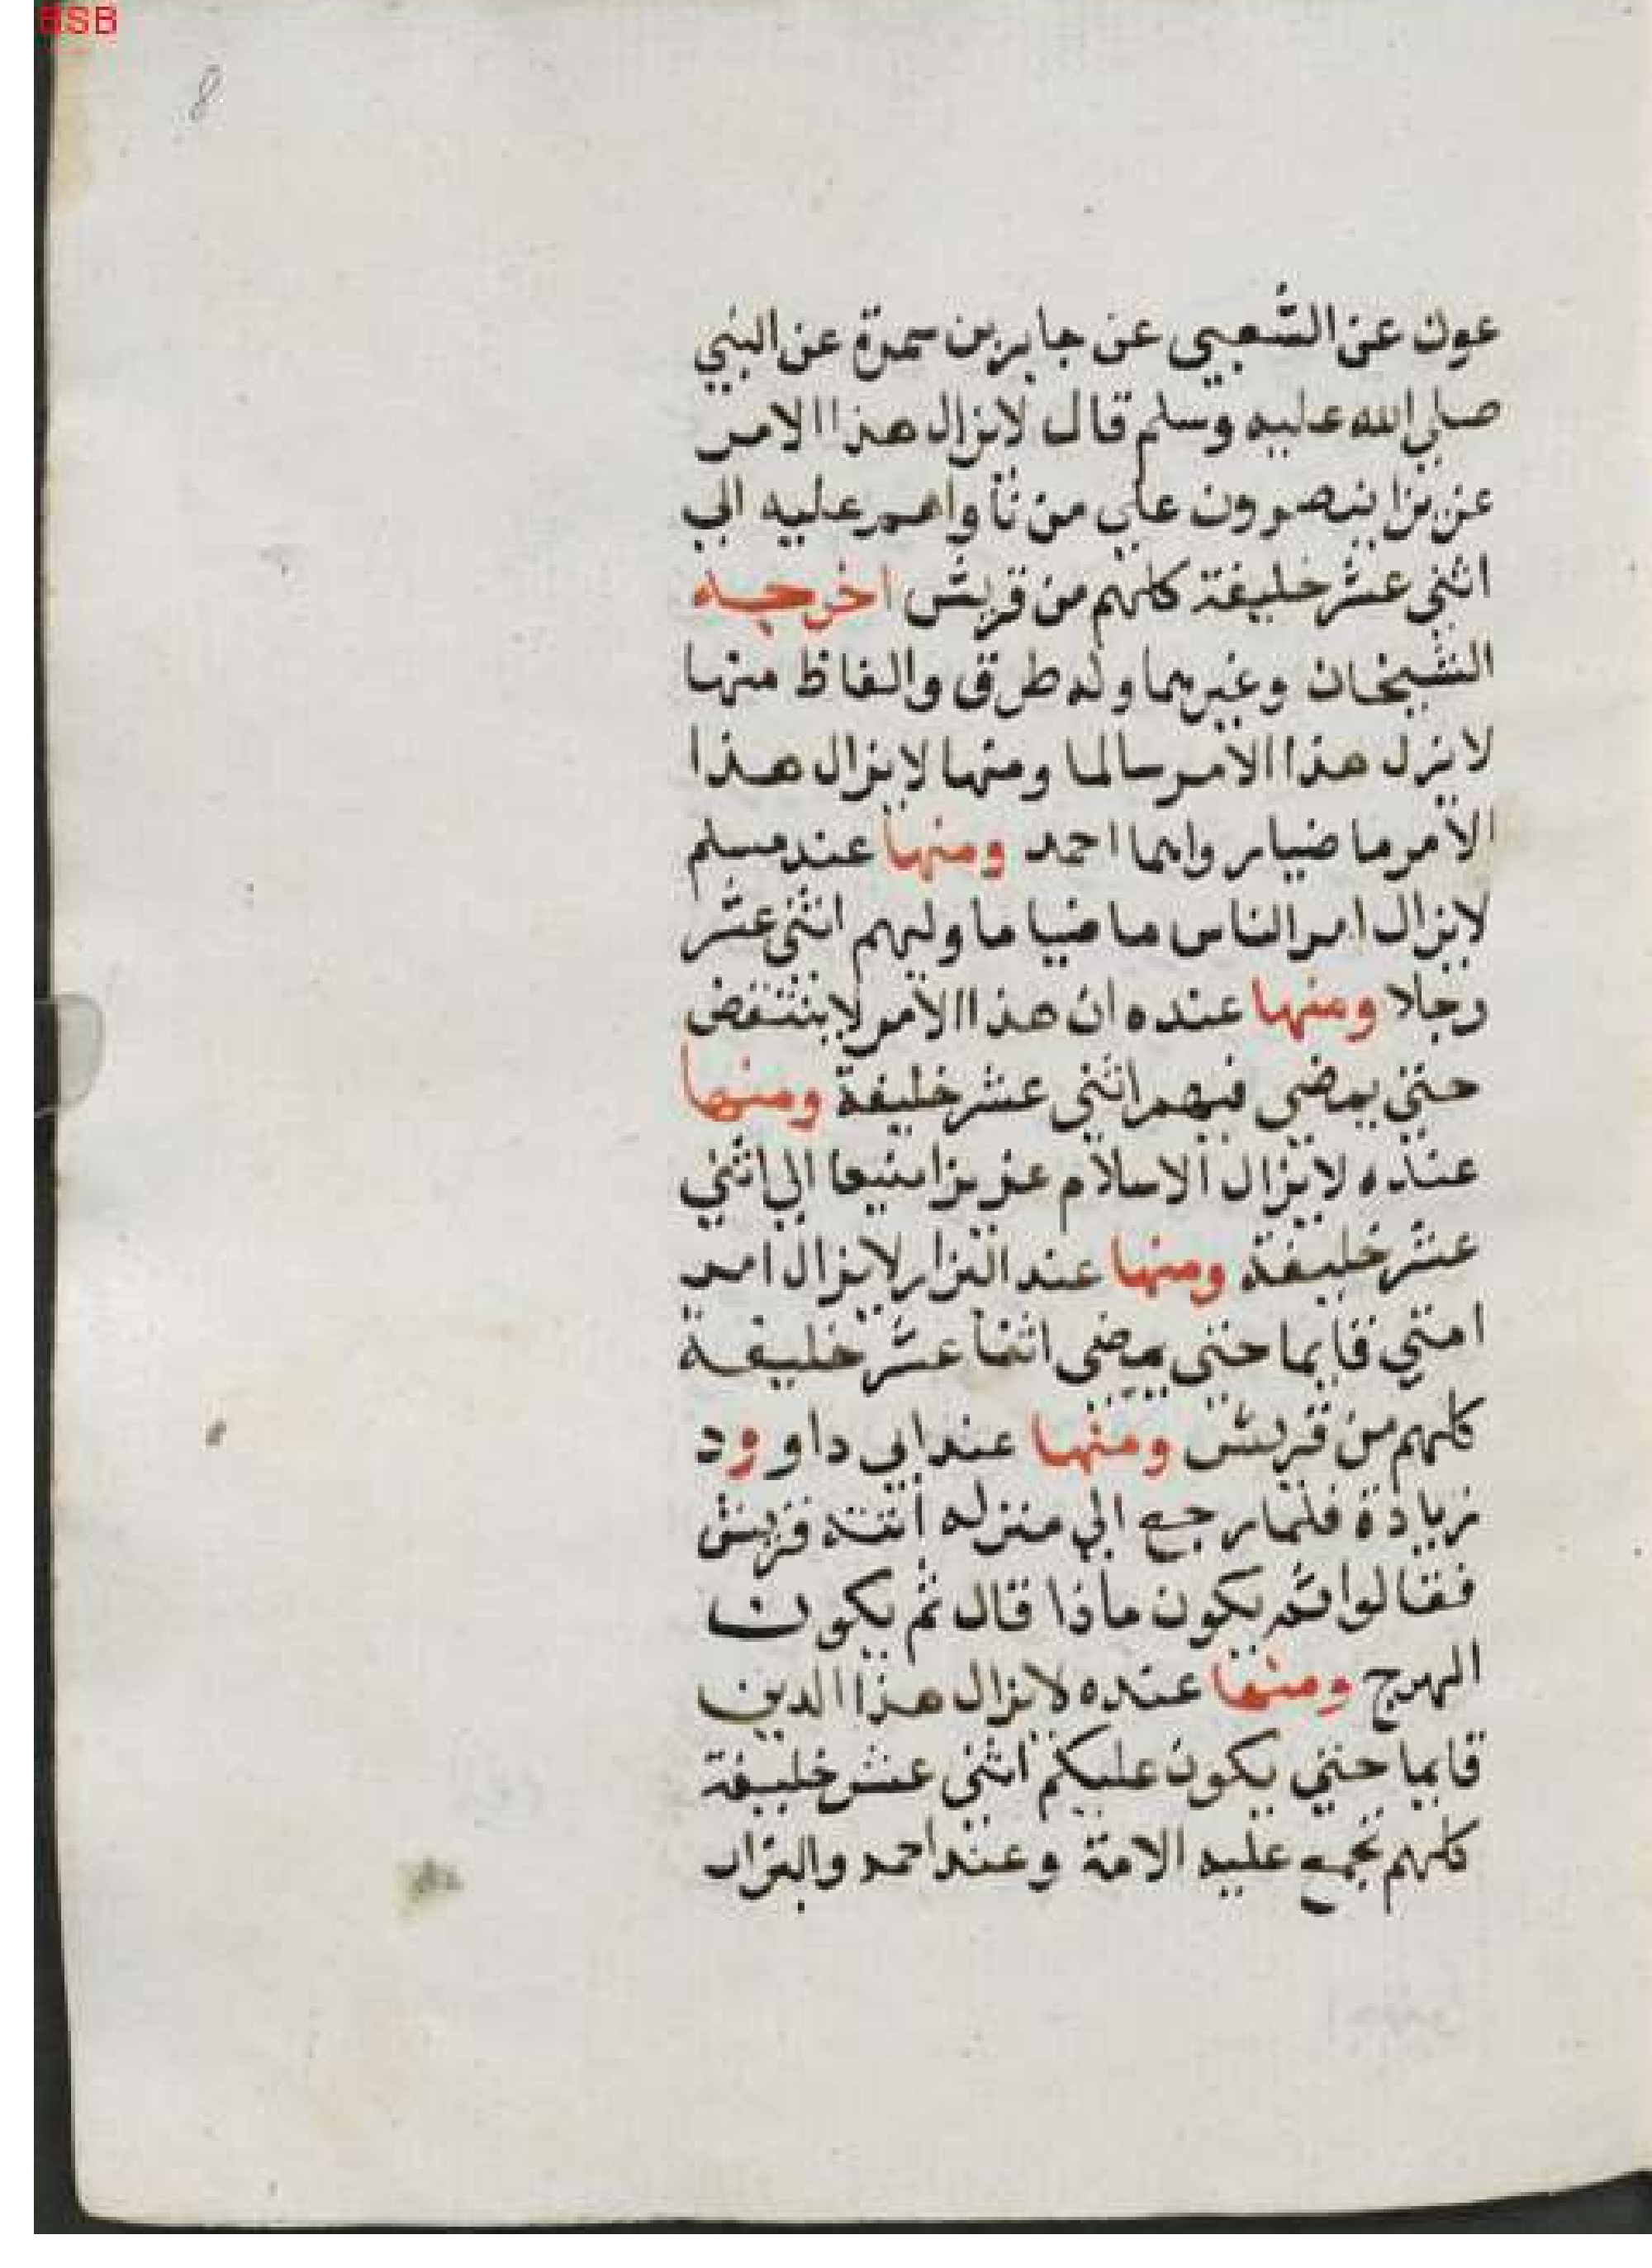 BSB
8
عون عن الشعبي عن جابر بن سمرة عن النبي
صلي الله عليه وسلم قال لا يزال هذا الامر
عزيزا ينصرون علي من ناواهم عليه الي
اثني عشر خليفة كلهم من قريش اخرجه
الشيخان وغيرهما وله طرق والفاظ منها
لا يزل هذا الامر سالما ومنها لا يزال هذا
الامر ماضيا رواهما احمد ومنها عند مسلم
لا يزال امر الناس ماضيا ما وليهم اثني عشر
رجلا ومنها عنده ان هذا الامر لا ينتقض
حتي يمضي فيهم اثني عشر خليفة ومنها
عنده لا يزال الاسلام عزيزا منيعا الي اثني
عشر خليفة ومنها عند البزار لا يزال امر
امتي قايما حتي يمضي اثنا عشر خليفة
كلهم من قريش ومنها عند ابي داوود
زيادة فلما رجع الي منزله اتته قريش
فقالوا ثم يكون ماذا قال ثم يكون
الهرج ومنها عنده لا يزال هذا الدين
قايما حتي يكون عليكم اثني عشر خليفة
كلهم تجمع عليه الامة وعند احمد والبزار